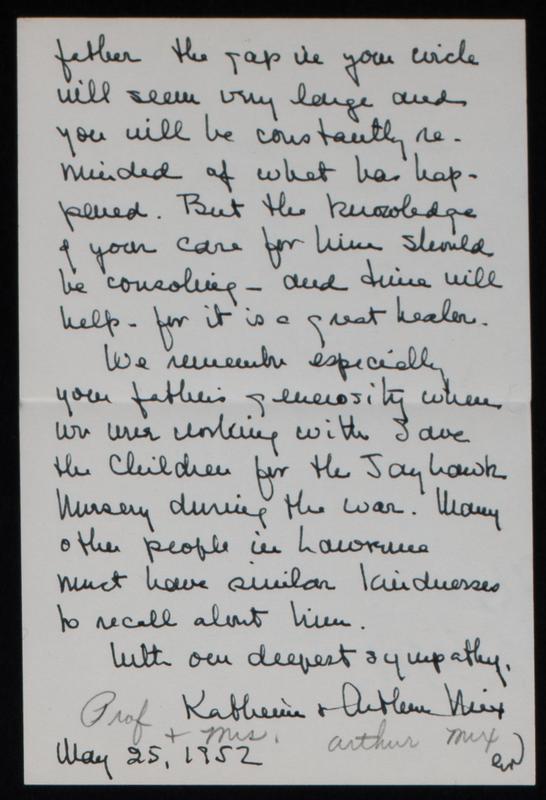 father the gap in your circle
will seem very large and
you will be constantly re-
minded of what has hap-
pened. But the knowledge
of your care for him should
be consoling - and time will
help - for it is a great healer.
We remember especially
your father's generosity when
we were working with Save
the Children for the Jayhawk
Nursery during the war. Many
other people in Lawrence
must have similar kindnesses
to recall about him.
With our deepest sympathy,
Katherine + Arthur Mix
Prof + Mrs. Arthur Mix
May 25, 1952